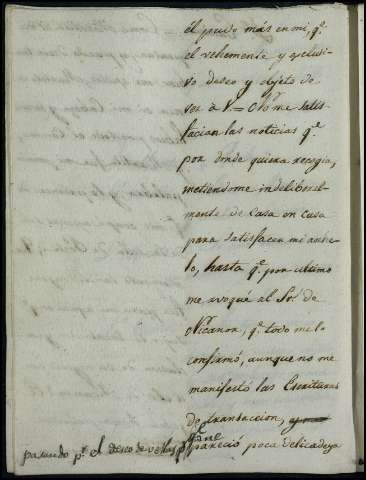 él pudo más en mi, q.e
el vehemente y exclusi-
vo deseo y objeto de
ver à V= No me satis-
facian las noticias q.e
por donde quiera recogia,
metiendome indeliberal-
mente de Casa en Casa
para satisfacer mi anhe-
lo, hasta q.e por ultimo
me avoqué al Sor. de
Nicanor, q.e todo me lo
confirmó, aunque no me
manifestó las Escrituras
de transaccion,
pareció poca delicadeza
pasando p.r el deseo de verlas